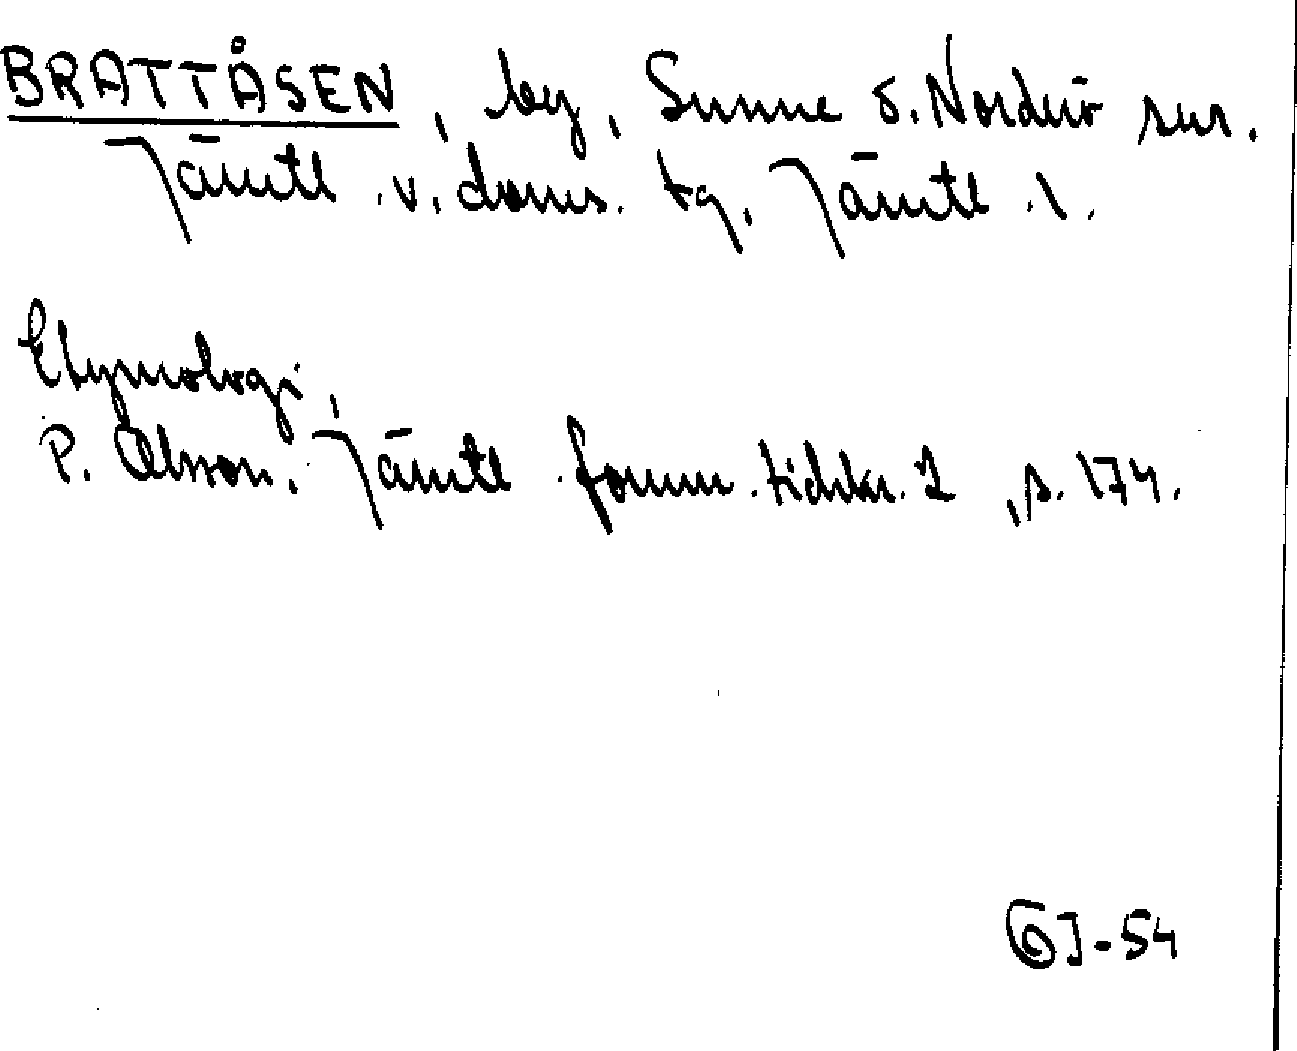 BRATTÅSEN, by, Sunne o. Norderö sn.
Jämtl. v. doms. tg, Jämtl. l.
Etymologi,
P. Olsson. Jämtl. fornm. tidskr. 2, s. 174.
GJ-54